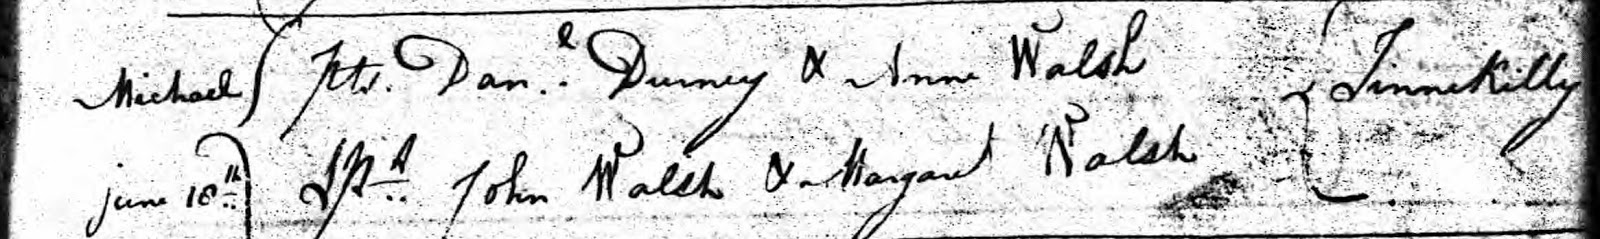 Michael Pts. Danl. Durney & Anne Walsh Tinnekilly
june 18th Sprs. John Walsh & Margaret Walsh